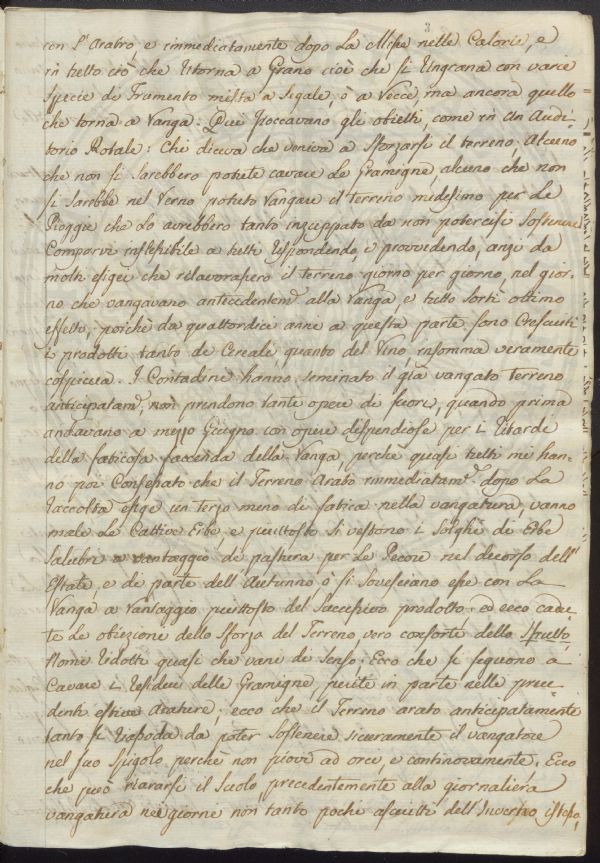 3
con l'Aratro e immediatamente dopo La Messe nelle Calorie, e
in tutto ciò che Ritorna a Grano cioè che si Ringrana con varie
specie di Frumento mista a Segale, ò a Vecce, ma ancora quello
che torna a Vanga: Qui fioccavano gli obietti, come in Un Audi-
torio Rotale: Chi diceva che veniva a Sforzarsi il terreno: Alcuno
che non si sarebbero potute cavare Le Gramigne, alcuno che non
si sarebbe nel Verno potuto Vangare il terreno medesimo per Le
Pioggie che Lo avrebbero tanto inzuppato da non potercisi Sostenere
Comparvi inflessibile a tutti Rispondendo, e provvedendo, anzi da
molti esigei che rilavorassero il terreno giorno per giorno, nel gior-
no che vangavano antecedentem.e alla Vanga e tutto sortì ottimo
effetto; poichè da quattordici anni a questa parte sono Cresciuti
i prodotti tanto di Cereali, quanto del Vino, insomma veramente
cospicua. I Contadini hanno seminato il già vangato Terreno
anticipatam.e non prendono tante opere di fuori, quando prima
andavano a mezzo Giugno con opere dispendiose per i Ritardi
della faticosa faccenda della Vanga perchè quasi tutti mi han-
no poi Confessato che il Terreno Arato immediatam.e dopo La
Raccolta esige un terzo meno di fatica nella vangatura, vanno
male Le Cattive Erbe e piuttosto si vestono i Solchi di Erbe
Salubri a vantaggio di pastura per Le Pecore nel decorso dell'
Estate, e di parte dell'Autunno, o si Sovesciano esse con La
Vanga a Vantaggio piuttosto del Successivo prodotto: ed ecco cadu-
te Le obiezione dello Sforzo del Terreno, vero conforto dello Sfrutto,
Nomi Ridotti quasi che vani di Senso: Ecco che si seguono a
Cavare i Residui delle Gramigne perite in parte nelle prece-
denti estive Arature; ecco che il Terreno arato anticipatamente
tanto si Rassoda da poter Sostenere sicuramente il vangatore
nel suo Spigolo perchè non piove ad ore, e continovamente. Ecco
che può riararsi il Suolo precedentemente alla giornaliera
vangatura nei giorni non tanto pochi asciutti dell'Inverno istesso,